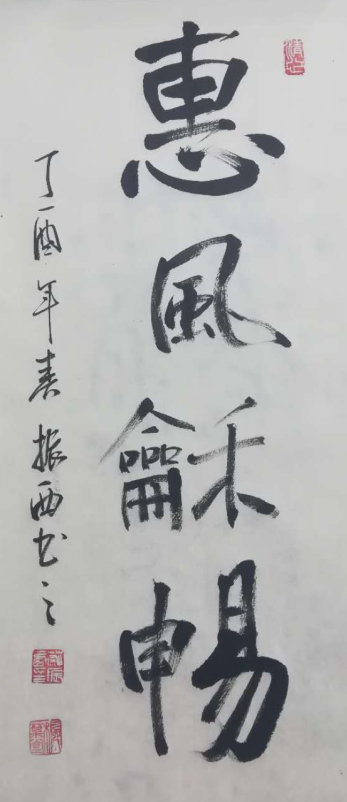 惠風龢暢
丁酉年春振西书之